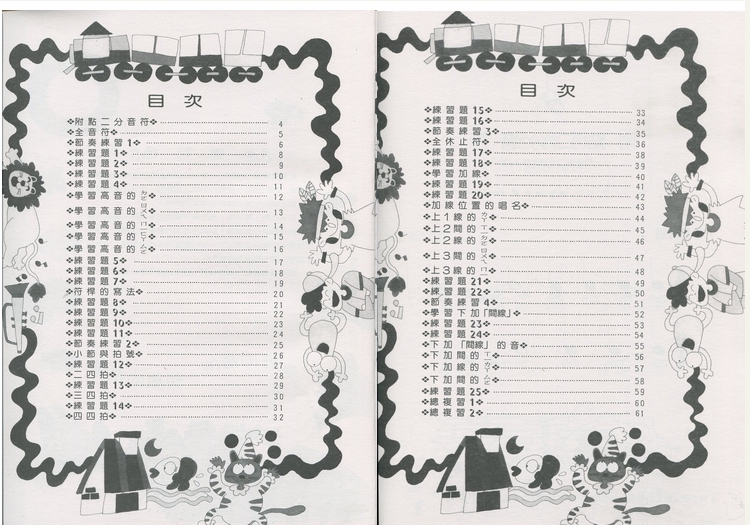 目次
❖附點二分音符❖ 4
❖全音符❖ 5
❖節奏練習1❖ 6
❖練習題1❖ 8
❖練習題2❖ 9
❖練習題3❖ 10
❖練習題4❖ 11
❖學習高音的ㄉㄛ❖ 12
❖學習高音的ㄖㄨㄟ❖ 13
❖學習高音的ㄇㄧ❖ 14
❖學習高音的ㄈㄚ❖ 15
❖學習高音的ㄙㄛ❖ 16
❖練習題5❖ 17
❖練習題6❖ 18
❖練習題7❖ 19
❖符桿的寫法❖ 20
❖練習題8❖ 21
❖練習題9❖ 22
❖練習題10❖ 23
❖練習題11❖ 24
❖節奏練習2❖ 25
❖小節與拍號❖ 26
❖練習題12❖ 27
❖二四拍❖ 28
❖練習題13❖ 29
❖三四拍❖ 30
❖練習題14❖ 31
❖四四拍❖ 32
目次
❖練習題15❖ 33
❖練習題16❖ 34
❖節奏練習3❖ 35
❖全休止符❖ 36
❖練習題17❖ 38
❖練習題18❖ 39
❖學習加線❖ 40
❖練習題19❖ 41
❖練習題20❖ 42
❖加線位置的唱名❖ 43
❖上1線的ㄌㄚ❖ 44
❖上2間的ㄒㄧ❖ 45
❖上2線的ㄉㄛ❖ 46
❖上3間的ㄖㄨㄟ❖ 47
❖上3線的ㄇㄧ❖ 48
❖練習題21❖ 49
❖練習題22❖ 50
❖節奏練習4❖ 51
❖學習下加「間線」❖ 52
❖練習題23❖ 53
❖練習題24❖ 54
❖下加「間線」的音❖ 55
❖下加間的ㄒㄧ❖ 56
❖下加線的ㄌㄚ❖ 57
❖下加間的ㄙㄛ❖ 58
❖練習題25❖ 59
❖總複習1❖ 60
❖總複習2❖ 61